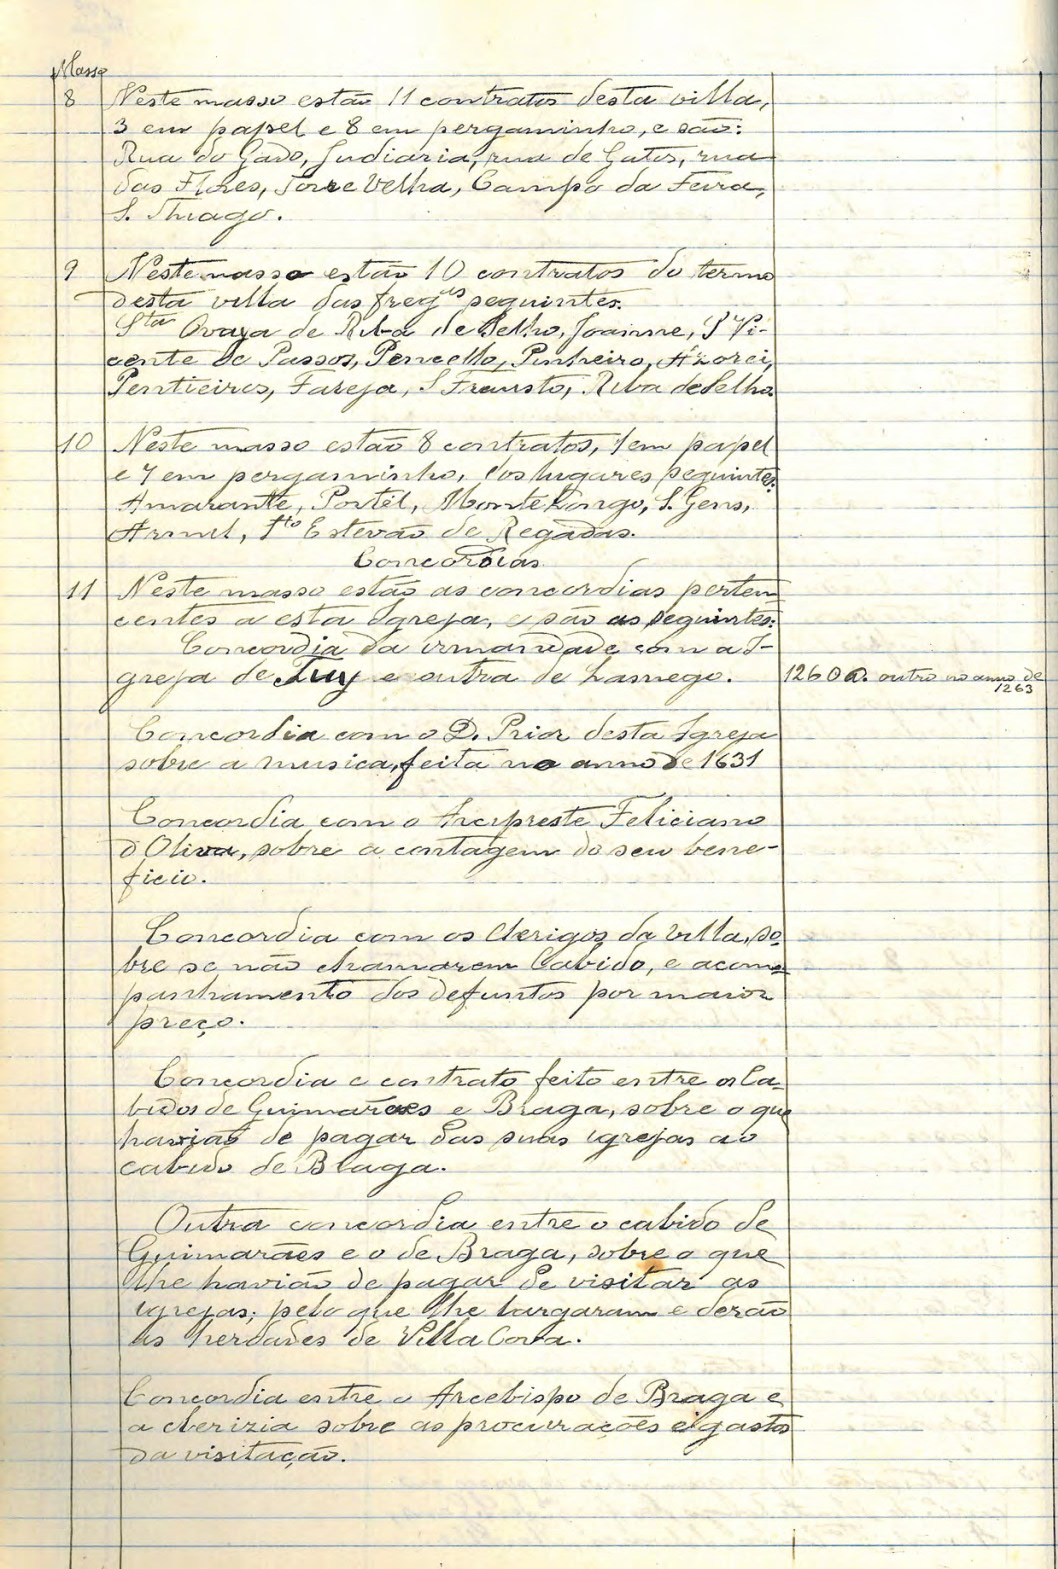 Masso
8 Neste masso estão 11 contratos desta villa,
3 em papel e 8 em pergaminho, e são:
Rua do Gado, Judiaria, rua de Gatos, rua
das Flores, Torre Velha, Campo da Feira,
S. Thiago.
9 Neste masso estão 10 contratos do termo
desta villa das fregas seguintes.
Sta Ovaya de Riba de Selho, Joanne, S Vi-
cente de Passos, Pencello, Pinheiro, Azorei,
Pentieiros, Fareja, S Frausto, Riba de Selho
10 Neste masso estão 8 contratos, 1 em papel
e 7 em pergaminho, dos lugares seguintes.
Amarante, Portel, Monte Longo, S. Gens,
Armil, Sto Estevão de Regadas.
Concordias
11 Neste masso estão as concordias perten
centes a esta Igreja, e são as seguintes:
Concordia da irmandade com a I-
greja de Tuy e outra de Lamego. 1260 outro no anno de
1263
Concordia com o D. Prior desta Igreja
sobre a musica, feita no anno de 1631
Concordia com o Arcipreste Feliciano
d'Oliva, sobre a contagem do seu bene-
ficio.
Concordia com os Clerigos da Villa, so-
bre se não chamarem Cabido, e acom-
panhamento dos defuntos por maior
preço.
Concordia e contrato feito entre os Ca-
bidos de Guimarães e Braga, sobre o que
havias de pagar das suas igrejas ao
cabido de Braga.
Outra concordia entre o cabido de
Guimarães e o de Braga, sobre o que
lhe havião de pagar de visitar as
igrejas; pelo que lhe largaram e derão
as herdades de Villa Cova.
Concordia entre o Arcebispo de Braga e
a clerizia sobre as procurações e gastos
da visitação.